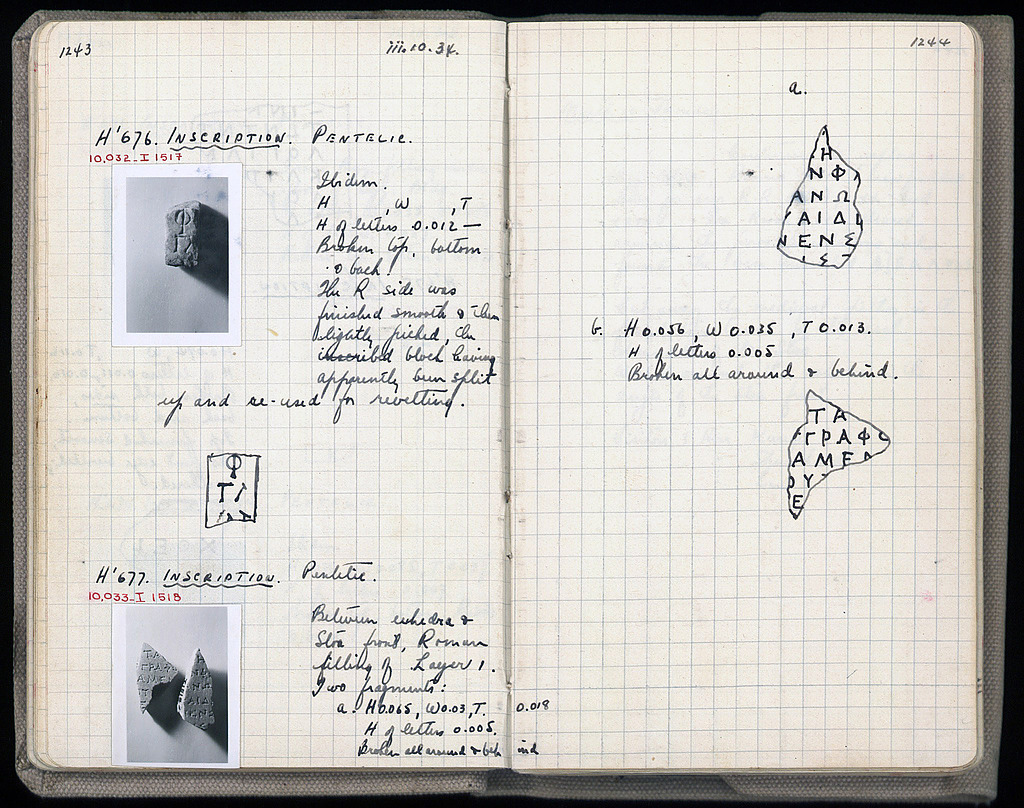 1243
iii.10.34.
H'676. INSCRIPTION. PENTELIC.
10,032-I 1517
Ibidem.
H , W , T
H of letters 0.012 —
Broken top, bottom
& back.
The R side was
finished smooth & then
slightly picked, the
inscribed block having
apparently been split
up and re-used for revetting.
Φ
Τ
H'677. INSCRIPTION. Pentelic.
10,033-I 1518
Between exhedra &
Stoa front, Roman
filling of Layer 1.
Two fragments:
a. H 0.065, W 0.03, T. 0.018
H of letters 0.005.
Broken all around & behind
1244
a.
Η
ΝΦ
ΑΝΩ
ΑΙΔ
ΝΕΝΣ
ΙΣ
b. H 0.056, W 0.035, T 0.013.
H of letters 0.005
Broken all around & behind.
ΤΑ
ΓΡΑΦΟ
ΑΜΕΛ
ΟΥ
Ε